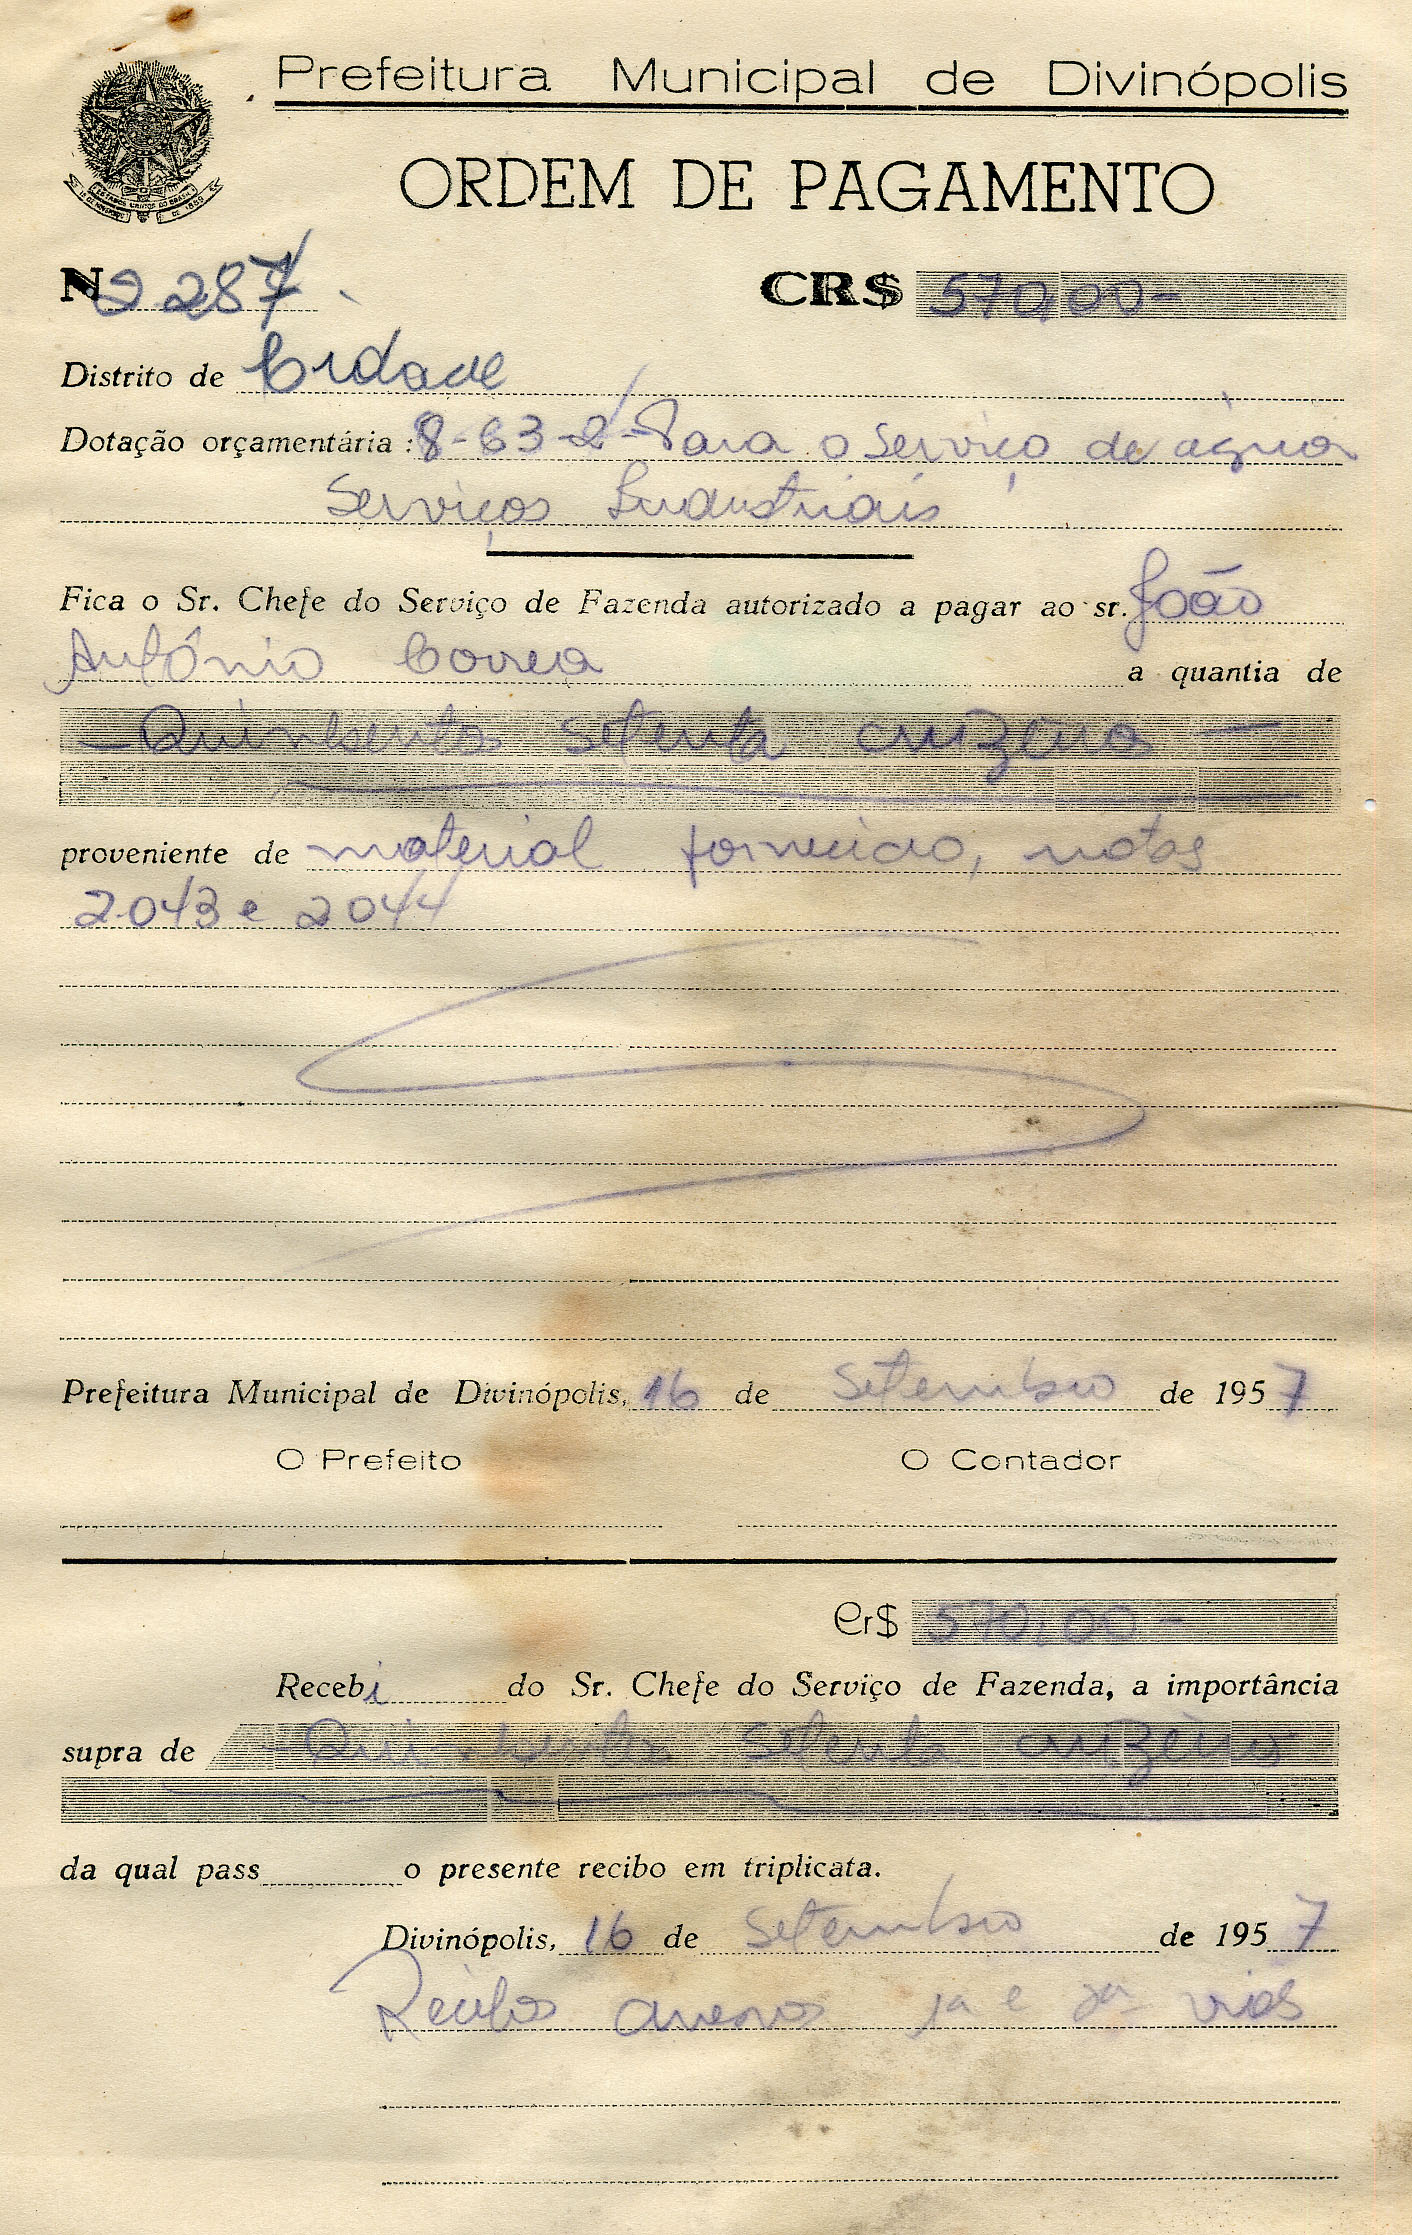 Prefeitura Municipal de Divinópolis
ORDEM DE PAGAMENTO
N 2287 CR$ 570,00-
Distrito de Cidade
Dotação orçamentária: 8-63-2-Para o serviço de água
Serviços Industriais
Fica o Sr. Chefe do Serviço de Fazenda autorizado a pagar ao sr. João
Antônio Correa a quantia de
-Quinhentos setenta cruzeiros-
proveniente de material fornecido, notas
2043 e 2044
Prefeitura Municipal de Divinópolis, 16 de Setembro de 1957
O Prefeito O Contador
Cr$ 570,00-
Recebi do Sr. Chefe do Serviço de Fazenda, a importância
supra de -Quinhentos setenta cruzeiros-
da qual pass o presente recibo em triplicata.
Divinópolis, 16 de Setembro de 1957
Recibos anexos 1a e vias